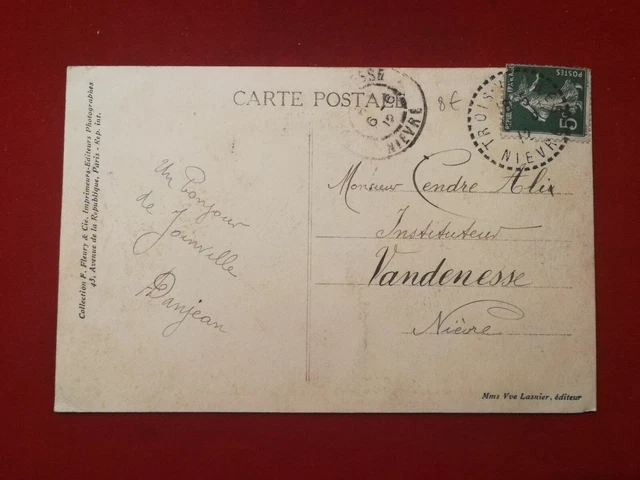 CARTE POSTALE
8€
TROIS-
12
NIÈVRE
POSTES
5c
ESSE
6
12
NIEVRE
Collection F. Fleury & Cie, Imprimeurs-Editeurs Photographes
43, Avenue de la République, Paris - Rep. int.
Un Bonjour
de Joinville
Danjean
Monsieur Cendre Alix
Instituteur
Vandenesse
Nièvre
Mme Vve Lasnier, éditeur